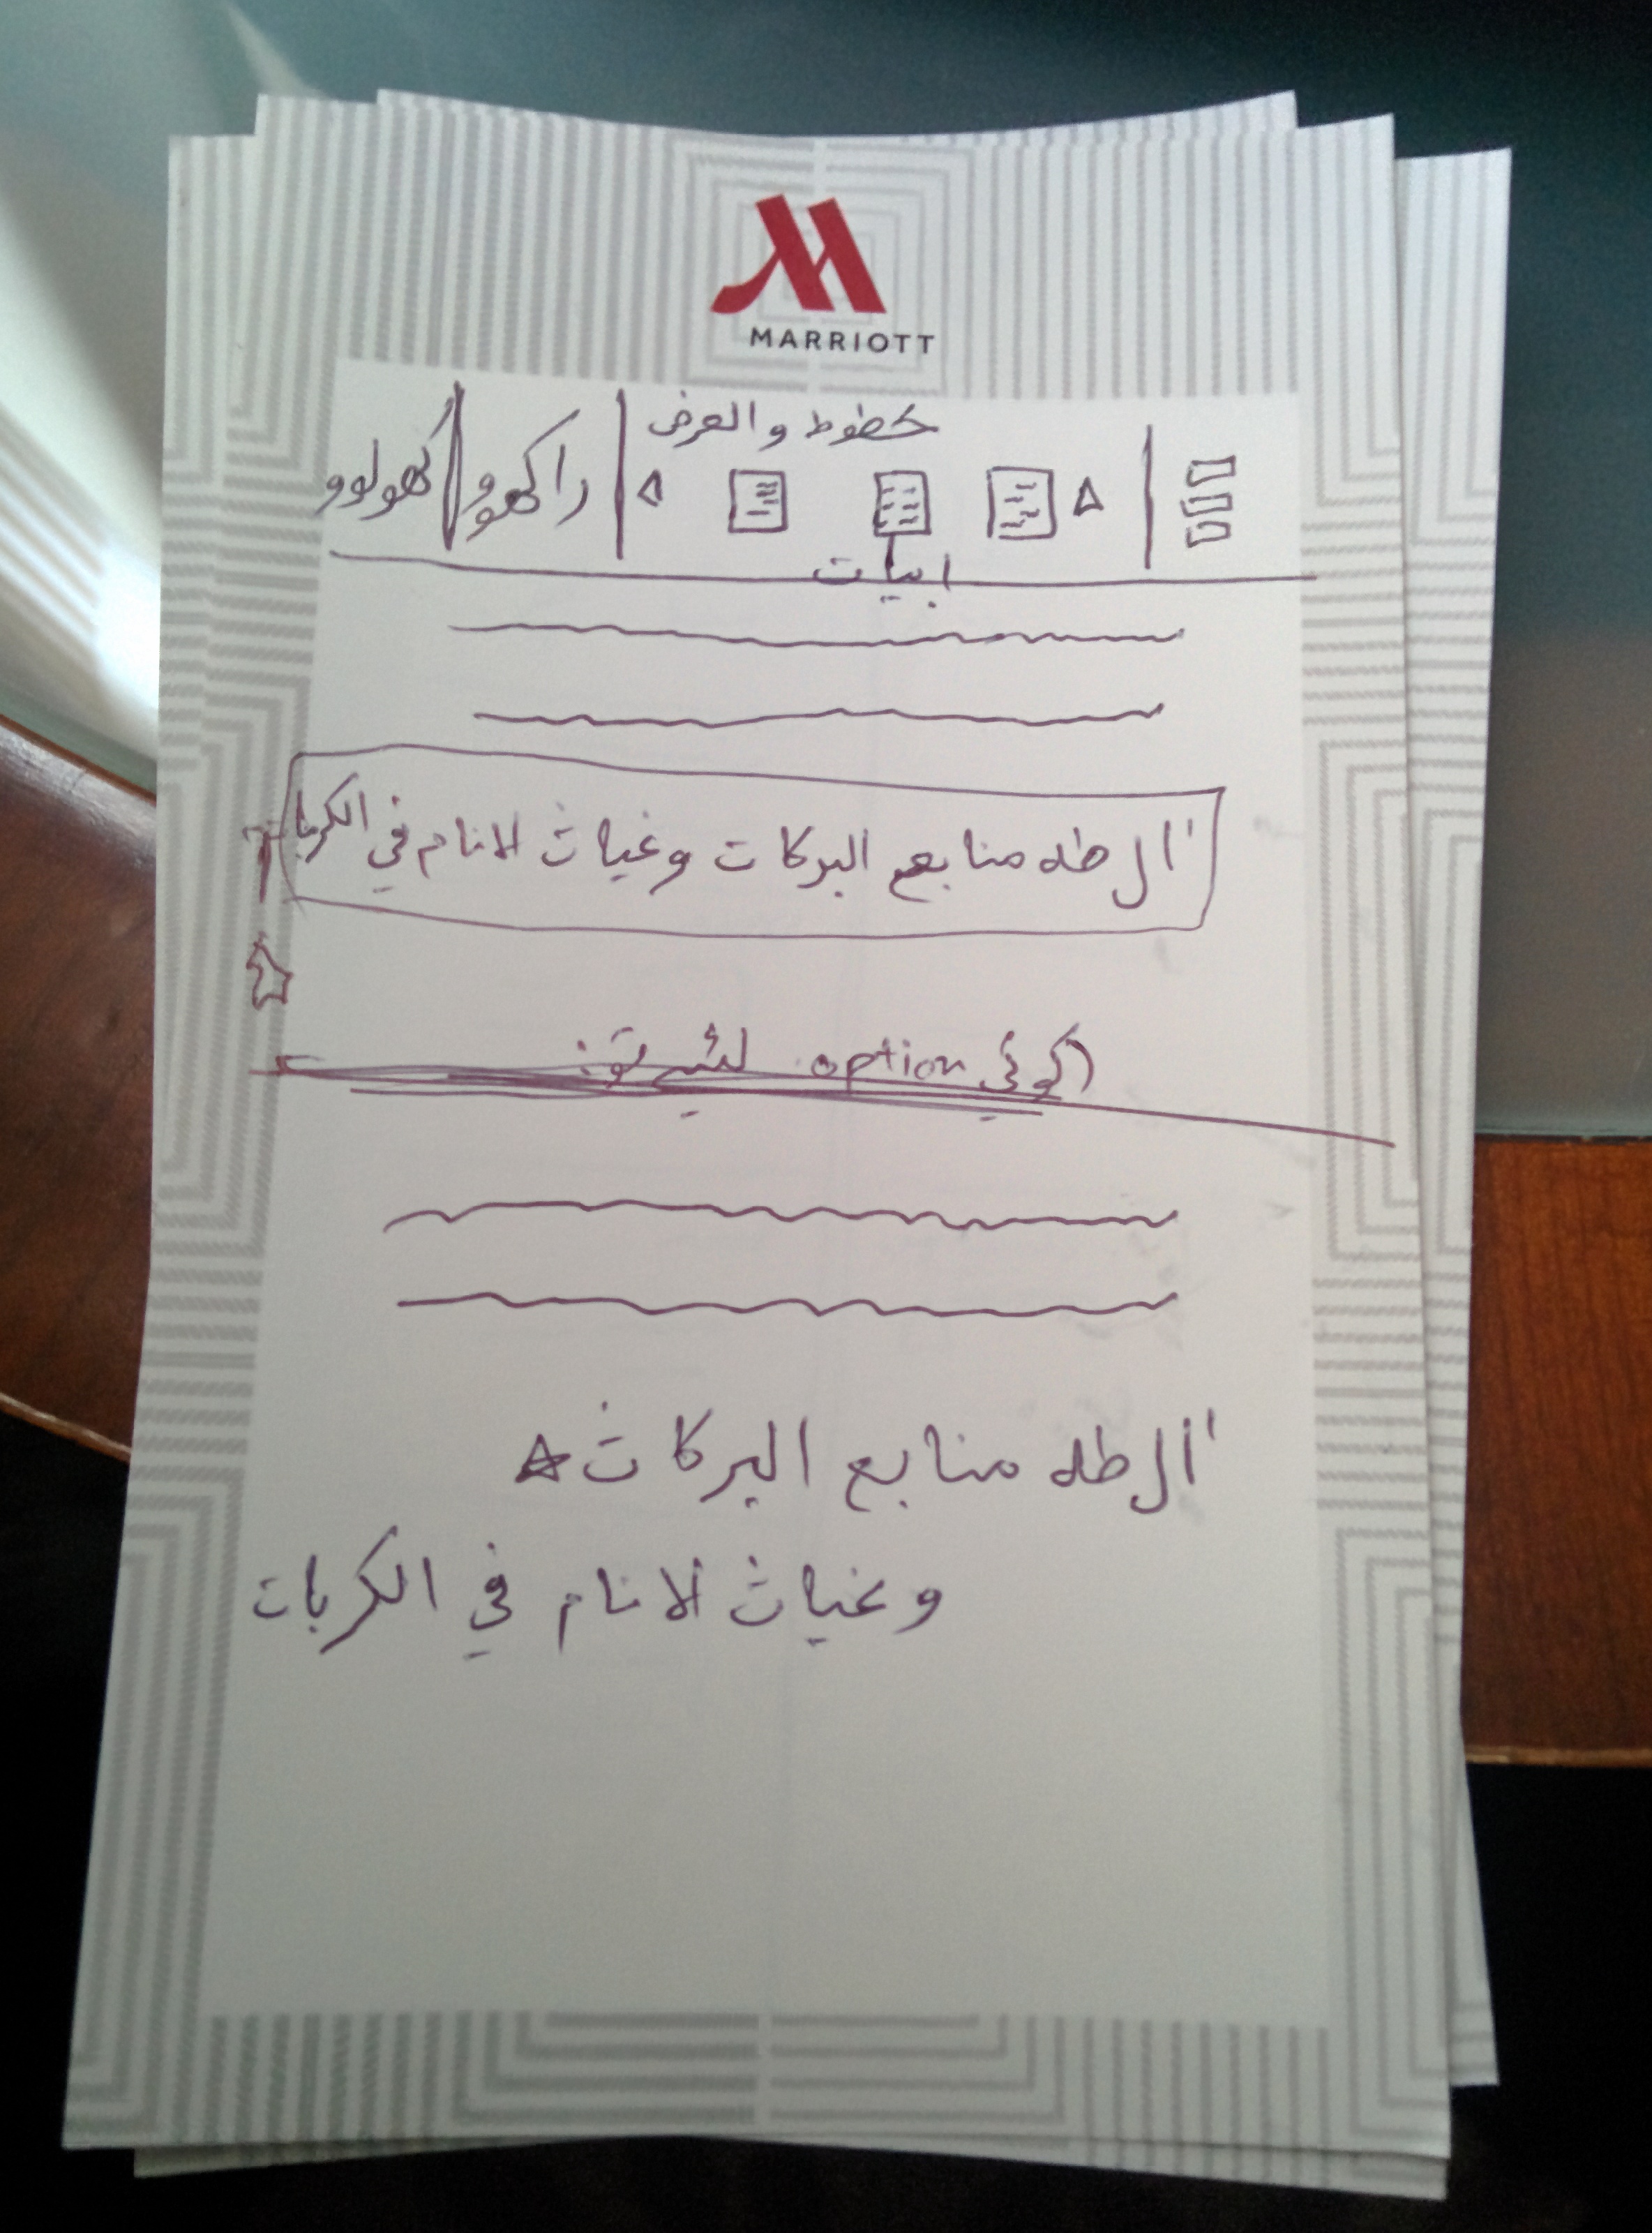 MARRIOTT
خطوط والعرض
راكهوو
كهولوو
ابيات
اٰل طه منابع البركات وغياث الانام في الكربات
كوئي option
اٰل طه منابع البركات
وغياث الانام في الكربات